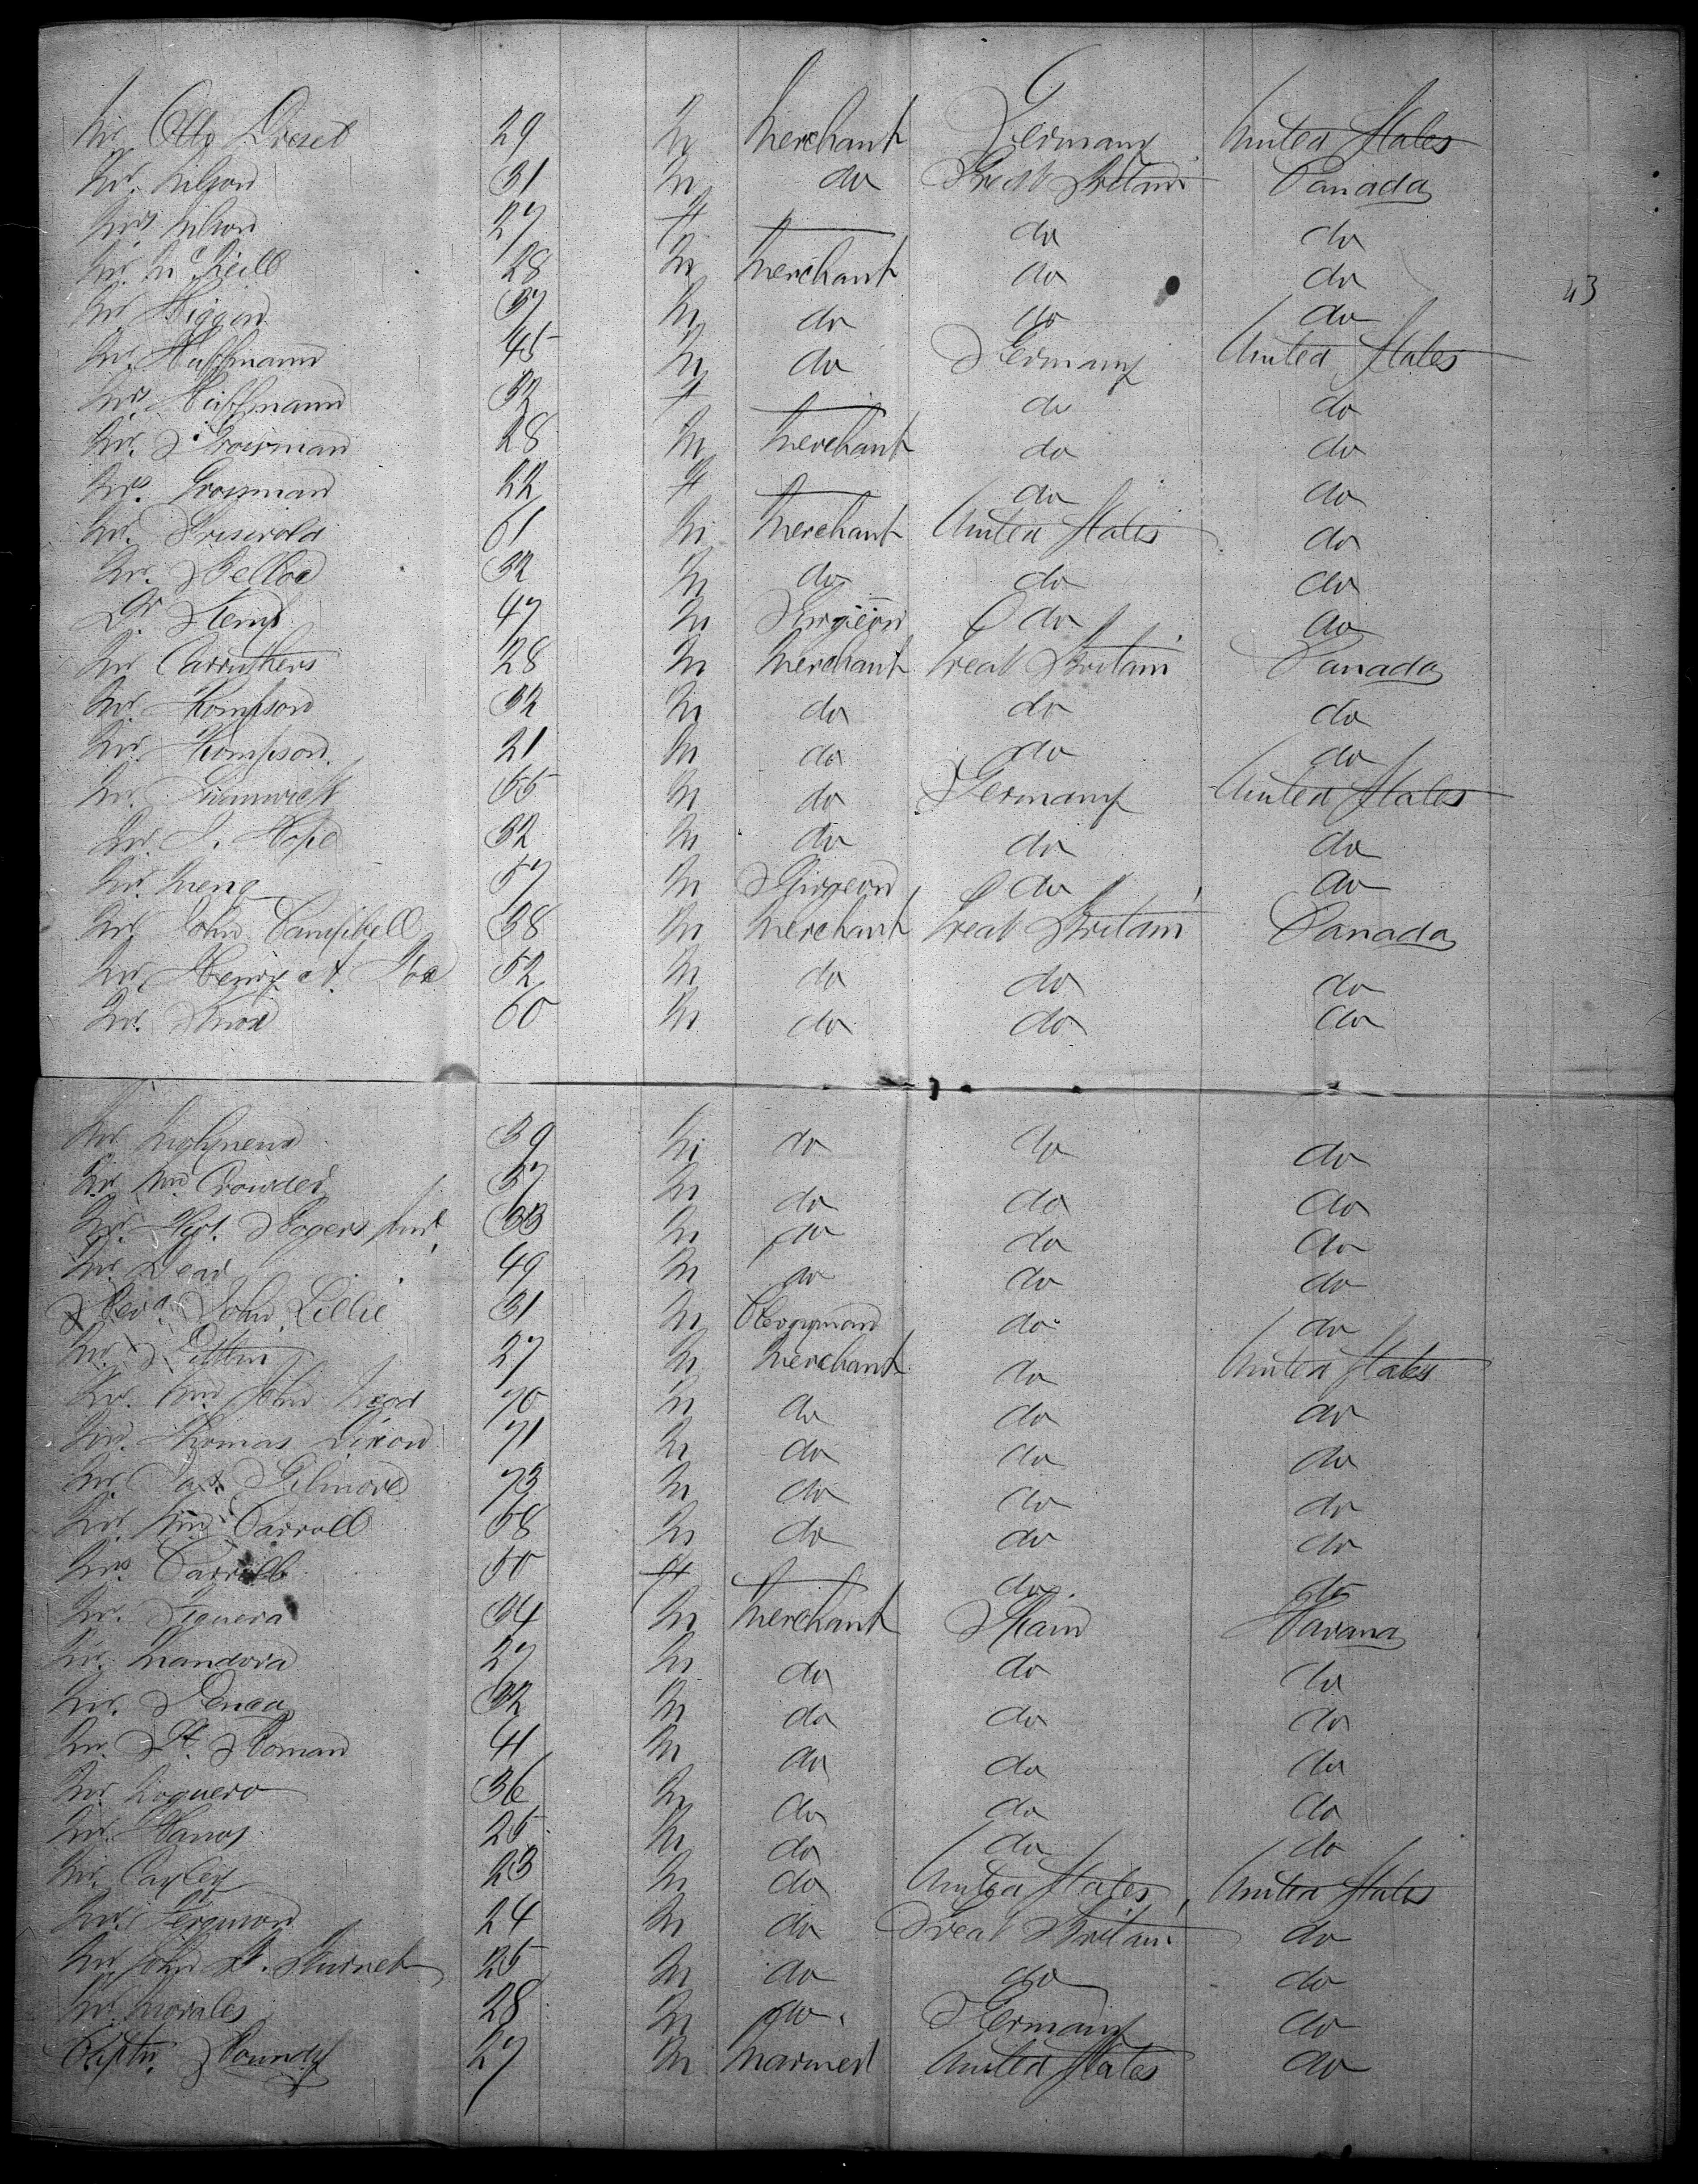 Mr. Otto Dresel 29 M Merchant Germany United States
Mr. Wilson 31 M do Great Britain Canada
Mrs. Wilson 27 F — do do
Mr. McNeill 28 M Merchant do do
Mr. Higgon 37 M do do do
43
Mr. Hoffmann 45 M do Germany United States
Mrs. Hoffmann 32 F — do do
Mr. Grossman 28 M Merchant do do
Mrs. Grossman 22 F — do do
Mr. Griswold 61 M Merchant United States do
Mr. 32 M do do do
Dr. Kemp 47 M Surgeon do do
Mr. Carruthers 28 M Merchant Great Britain Canada
Mr. Thompson 32 M do do do
Mr. Thompson 21 M do do do
Mr. 55 M do Germany United States
Mr. J. Hope 32 M do do do
Mr. 57 M Surgeon do do
Mr. John Campbell 38 M Merchant Great Britain Canada
Mr. Henry A. 52 M do do do
Mr. Knox 60 M do do do
Mr. 39 M do do do
Mr. Wm. Crowder 37 M do do do
Mr. Rogers 33 M do do do
Mr. Dear 49 M do do do
Revd. John Lillie 31 M Clergyman do do
Mr. 27 M Merchant do United States
Mr. Wm. John 70 M do do do
Mr. Thomas Dixon 71 M do do do
Mr. Jas. Gilmore 73 M do do do
Mr. Wm. Carroll 58 M do do do
Mrs. Carroll 50 F — do do
Mr. 34 M Merchant Spain Havana
Mr. 27 M do do do
Mr. 32 M do do do
Mr. St. Roman 41 M do do do
Mr. Noguero 36 M do do do
Mr. 25 M do do do
Mr. Cayley 23 M do United States United States
Mr. Ferguson 24 M do Great Britain do
Mr. John 25 M do do do
Mr. Morales 28 M do Germany do
Captn. Roundy 27 M Marine United States do